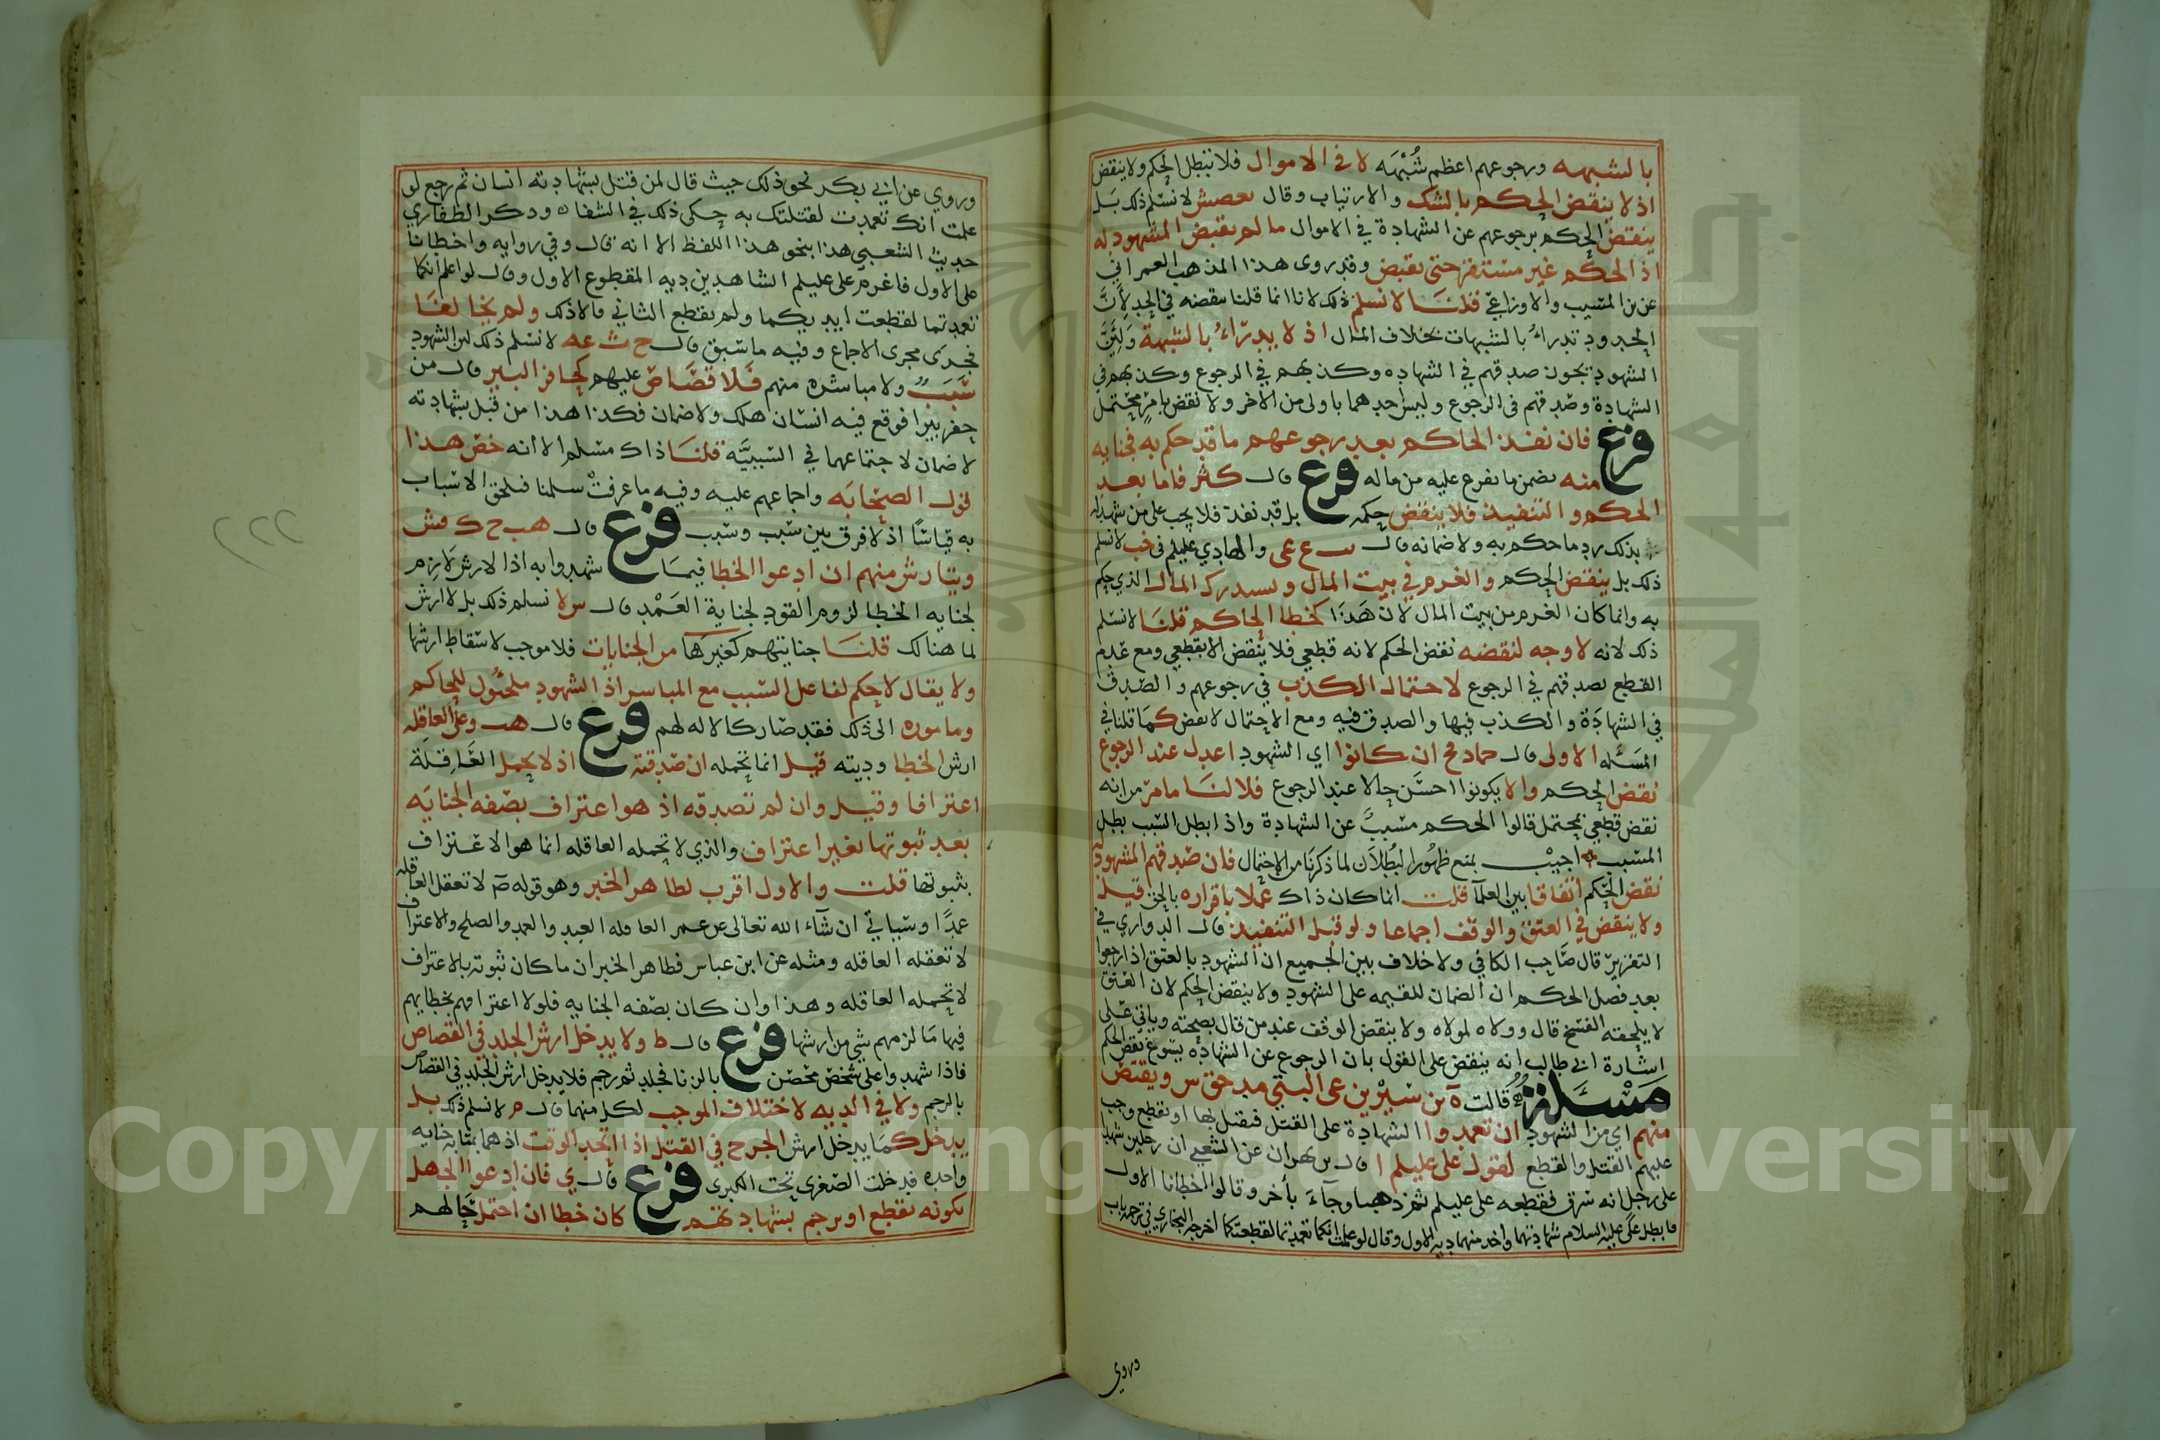 بالشبهه ورجوعهم اعظم شُبْهَه لا في الاموال فلا تبطل الحكم ولا ينقض
اذ لا ينقض الحكم بالشك والارتياب وقال بعصش لا نسلم ذلك بل
ينقض الحكم برجوعهم عن الشهادة في الاموال ما لم يقبض المشهود له
اذ الحكم غير مستقر حتى يقبض وقد روى هذا المذهب العمراني
عن بن المسيب والاوزاعي قلنا لا نسلم ذلك لانا انما قلنا بنقضه في الحد لأن
الحدود تدراء بالشبهات بخلاف المال اذ لا يدراء بالشبهة ولئن
الشهود يجوز صدقهم في الشهاده وكذبهم في الرجوع وكذبهم في
الشهادة وصدقهم في الرجوع وليس احدهما باولى من الاخر ولا نقض بامر محتمل
فرع فان نفذ الحاكم بعد رجوعهم ما قد حكم به فجنايه
منه يضمن ما تفرع عليه من ماله فرع قال كثر فاما بعد
الحكم والتنفيذ فلا ينقض حكمه بل قد نفذ فلا يجب على من شهد له
بذلك رد ما حكم به ولا ضمانه قال س ع عى والهادي عليلم في خب لا نسلم
ذلك بل ينقض الحكم والغرم في بيت المال ويستدرك المال الذي حكم
به وانما كان الغرم من بيت المال لان هذا كخطا الحاكم قلنا لا نسلم
ذلك لانه لا وجه لنقضه نقض الحكم لانه قطعي فلا ينقض الا بقطعي ومع عدم
القطع بصدقهم في الرجوع لاحتمال الكذب في رجوعهم والصدق
في الشهادة والكذب فيها والصدق فيه ومع الاحتمال لا نقض كما قلنا في
المسئله الاولى قال حماد مح ان كانوا اي الشهود اعدل عند الرجوع
نقض الحكم والا يكونوا احسن حالا عند الرجوع فلا لنا ما مر من انه
نقض قطعي بمحتمل قالوا الحكم مسبب عن الشهادة واذا بطل السبب بطل
المسبب اجيب بمنع ظهور البطلان لما ذكرنا من الاحتمال فان صدقهم المشهود
نقض الحكم اتفاقا بين العلما قلت انما كان ذاك عملا باقراره بالحق قيل
ولا ينقض في العتق والوقف اجماعا ولو قبل التنفيذ قال الدواري في
التقرير قال صاحب الكافي ولا خلاف بين الجميع ان الشهود بالعتق اذا رجعوا
بعد فصل الحكم ان الضمان للقيمه على الشهود ولا ينقض الحكم لان العتق
لا يلحقه الفسخ قال وولاه لمولاه ولا ينقض الوقف عند من قال بصحته وياتي على
اشارة ابي طالب انه ينقض على القول بان الرجوع عن الشهاده يسوغ نقض الحكم
مسئلة قالت ه بن سيرين عى البتي مد حق س ويقتص
منهم اي من الشهود ان تعمدوا الشهادة على القتل فيقتل بها او يقطع وجب
عليهم القتل والقطع لقول علي عليلم قال بن بهران عن الشعبي ان رجلين شهدا
على رجل انه سرق فقطعه علي عليلم ثم ذهبا وجآءَ باخر وقالوا اخطانا الاول
فابطل علي عليه السلام شهادتهما واخذ منهما دية الاول وقال لو علمت انكما تعمدتما لقطعتكما اخرجه البخاري في ترجمة باب
وروي
وروي عن ابي بكر نحو ذلك حيث قال لمن قتل بشهادته انسان ثم رجع لو
علمت انك تعمدت لقتلتك به حكى ذلك في الشفاء وذكر الظفاري
حديث الشعبي هذا بنحو هذا اللفظ الا انه قال وفي روايه واخطانا
على الاول فاغرم علي عليلم الشاهدين ديه المقطوع الاول وقال لو اعلم انكما
تعمدتما لقطعت ايديكما ولم يقطع الثاني قالا ذلك ولم يخالفا
فجرى مجرى الاجماع وفيه ما سبق قال ح ث عه لا نسلم ذلك لان الشهود
سبب ولا مباشره منهم فلا قصاص عليهم كحافر البير قال من
حفر بيرا فوقع فيه انسان هلك ولا ضمان فكذا هذا من قتل بشهادته
لا ضمان لاجتماعهما في السببيَّة قلنا ذاك مسلم الا انه خص هذا
قول الصحابه واجماعهم عليه وفيه ما عرفت سلمنا فنلحق الاسباب
به قياسًا اذ لا فرق بين سبب وسبب فرع قال هب ح ك قش
ويتارش منهم ان ادعوا الخطا فيما شهدوا به اذ الارش لازم
لجنايه الخطا لزوم القود لجناية العمد قال س لا نسلم ذلك بل لا ارش
لما هنالك قلنا جنايتهم كغيرها من الجنايات فلا موجب لاسقاط ارشها
ولا يقال لا حكم لفاعل السبب مع المباشر اذ الشهود ملجئون للحاكم
وما موره الى ذلك فقد صار كالاله لهم فرع قال هب وعلى العاقله
ارش الخطا وديته قيل انما تحمله ان صدقته اذ لا يحمل العاقلة
اعترافا وقيل وان لم تصدقه اذ هو اعتراف بصفه الجنايه
بعد ثبوتها بغير اعتراف والذي لا تحمله العاقله انما هو الاعتراف
بثبوتها قلت والاول اقرب لظاهر الخبر وهو قوله صم لا تعقل العاقله
عمدًا وسياتي ان شآء الله تعالى عن عمر العاقله العبد والعمد والصلح والاعتراف
لا تعقله العاقله ومثله عن ابن عباس فظاهر الخبر ان ما كان ثبوته بالاعتراف
لا تحمله العاقله وهذا وان كان بصفه الجنايه فلولا اعترافهم بخطايهم
فيها ما لزمهم شي من ارشها فرع قال ط ولا يدخل ارش الجلد في القصاص
فاذا شهدوا على شخص محصن بالزنا فجلد ثم رجم فلا يدخل ارش الجلد في القصاص
بالرجم ولا في الديه لاختلاف الموجب لكل منهما قال م لا نسلم ذلك بل
يدخل كما يدخل ارش الجرح في القتل اذا اتحد الوقت اذ هما بمثابه جنايه
واحده فدخلت الصغرى تحت الكبرى فرع قال ي فان ادعوا الجهل
بكونه يقطع او يرجم بشهادتهم كان خطا ان احتمل حالهم
٢٢٢
Copyright © King Saud University
جامعة الملك سعود